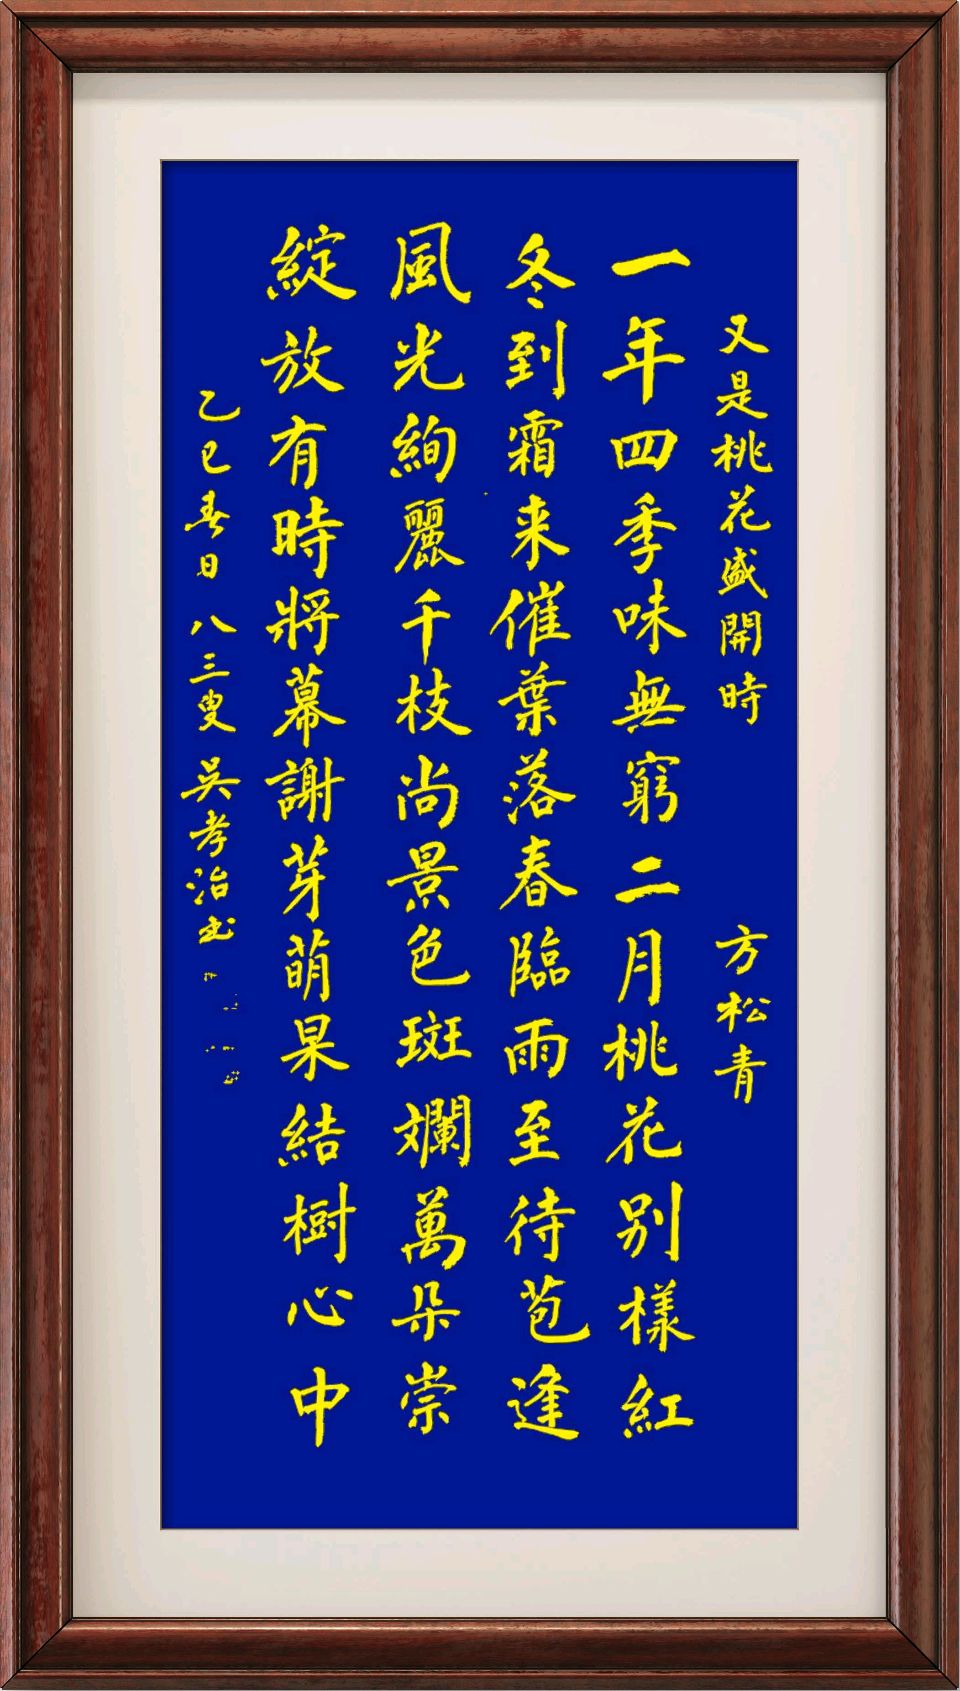 又是桃花盛開時 方松青
一年四季味無窮二月桃花别樣紅
冬到霜来催葉落春臨雨至待苞逢
風光絢麗千枝尚景色斑斕萬朵崇
綻放有時將幕謝芽萌果結樹心中
乙巳春日 八三叟 吳孝治书